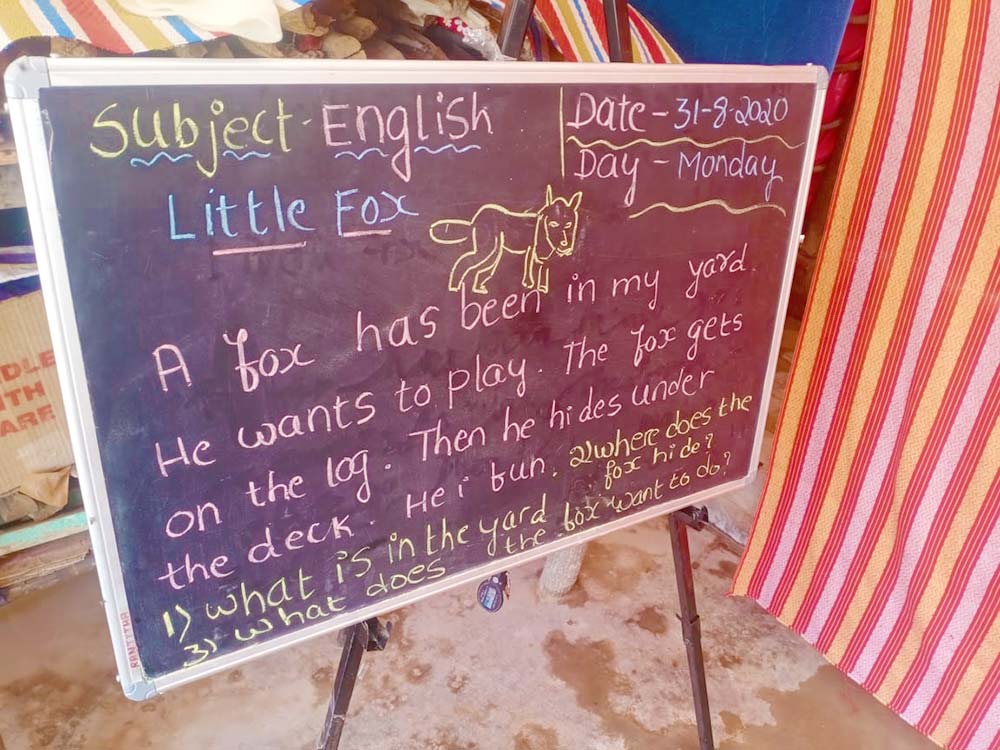 Subject - English
Date - 31-8-2020
Day - Monday
Little Fox
A fox has been in my yard.
He wants to play. The fox gets
on the log. Then he hides under
the deck. He i fun.
1) what is in the yard
2) where does the
fox hide?
3) what does the fox want to do?
RANJITHA
DLE
ITH
ARE